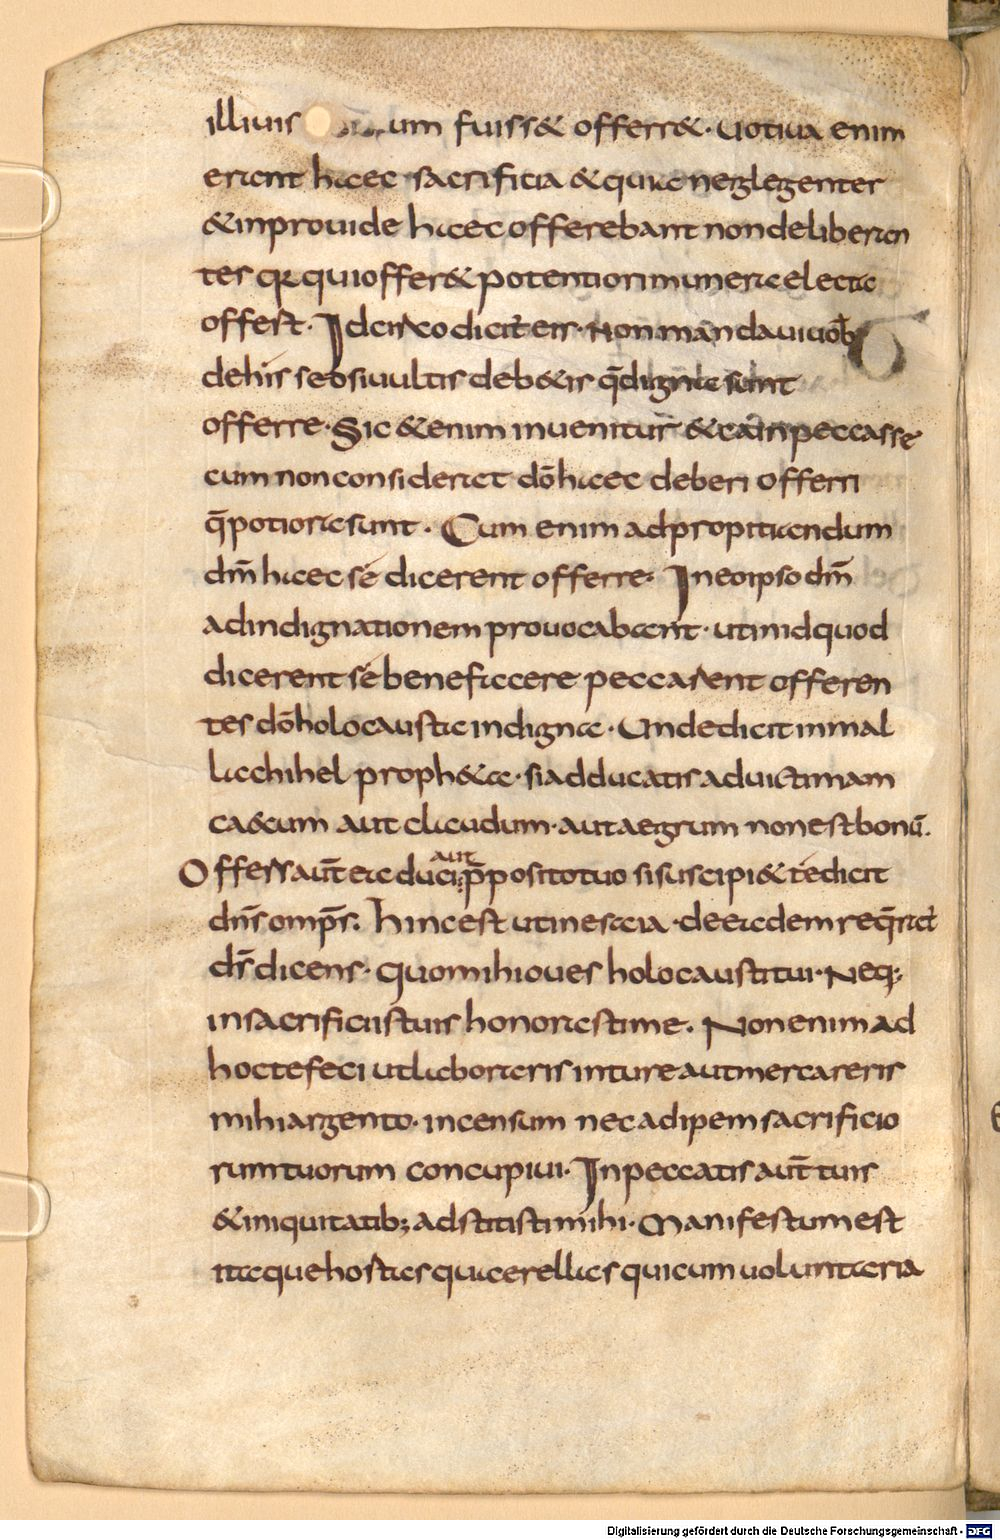 illiuis um fuiss& offerr&. uotiua enim
erant haec sacrificia & quia neglegenter
& inprouide haec offerebant non deliberan
tes qr qui offer& potentiori munera electa
offerst. Idcirco dicit eis. Non mandaui uob
de his sed si uultis deb&is q̄ digna sunt
offerre. Sic & enim inuenitur & cain peccasse
cum non considerat dō haec deberi offerri
q̄ potiora sunt. Cum enim ad propitiandum
dm̄ haec sé dicerent offerre. In eo ipso dm̄
ad indignationem prouocabant. ut in id quod
dicerent sé benefacere peccarent offeren
tes dō holocausta indigna. Unde dicit in mal
lachihel proph&a. si adducatis ad uictimam
ca&cum aut claudum. aut aegrum non est bonū.
Offers aūt ea duci aut p̄posito tuo si suscipi&te dicit
dn̄s omp̄s. hinc est ut in esaia. de eadem re q̄rat
dn̄s dicens. Quo mihi oues holocausti tui. Neq;
in sacrificiis tuis honorasti me. Non enim ad
hoc te feci ut laboraris in ture aut mercareris
mihi argento. incensum nec adipem sacrificio
rum tuorum concupiui. In peccatis aūt tuis
& iniquitatib; adstitisti mihi. Manifestum est
itaque hostias qua cerellias qui cum uoluntaria